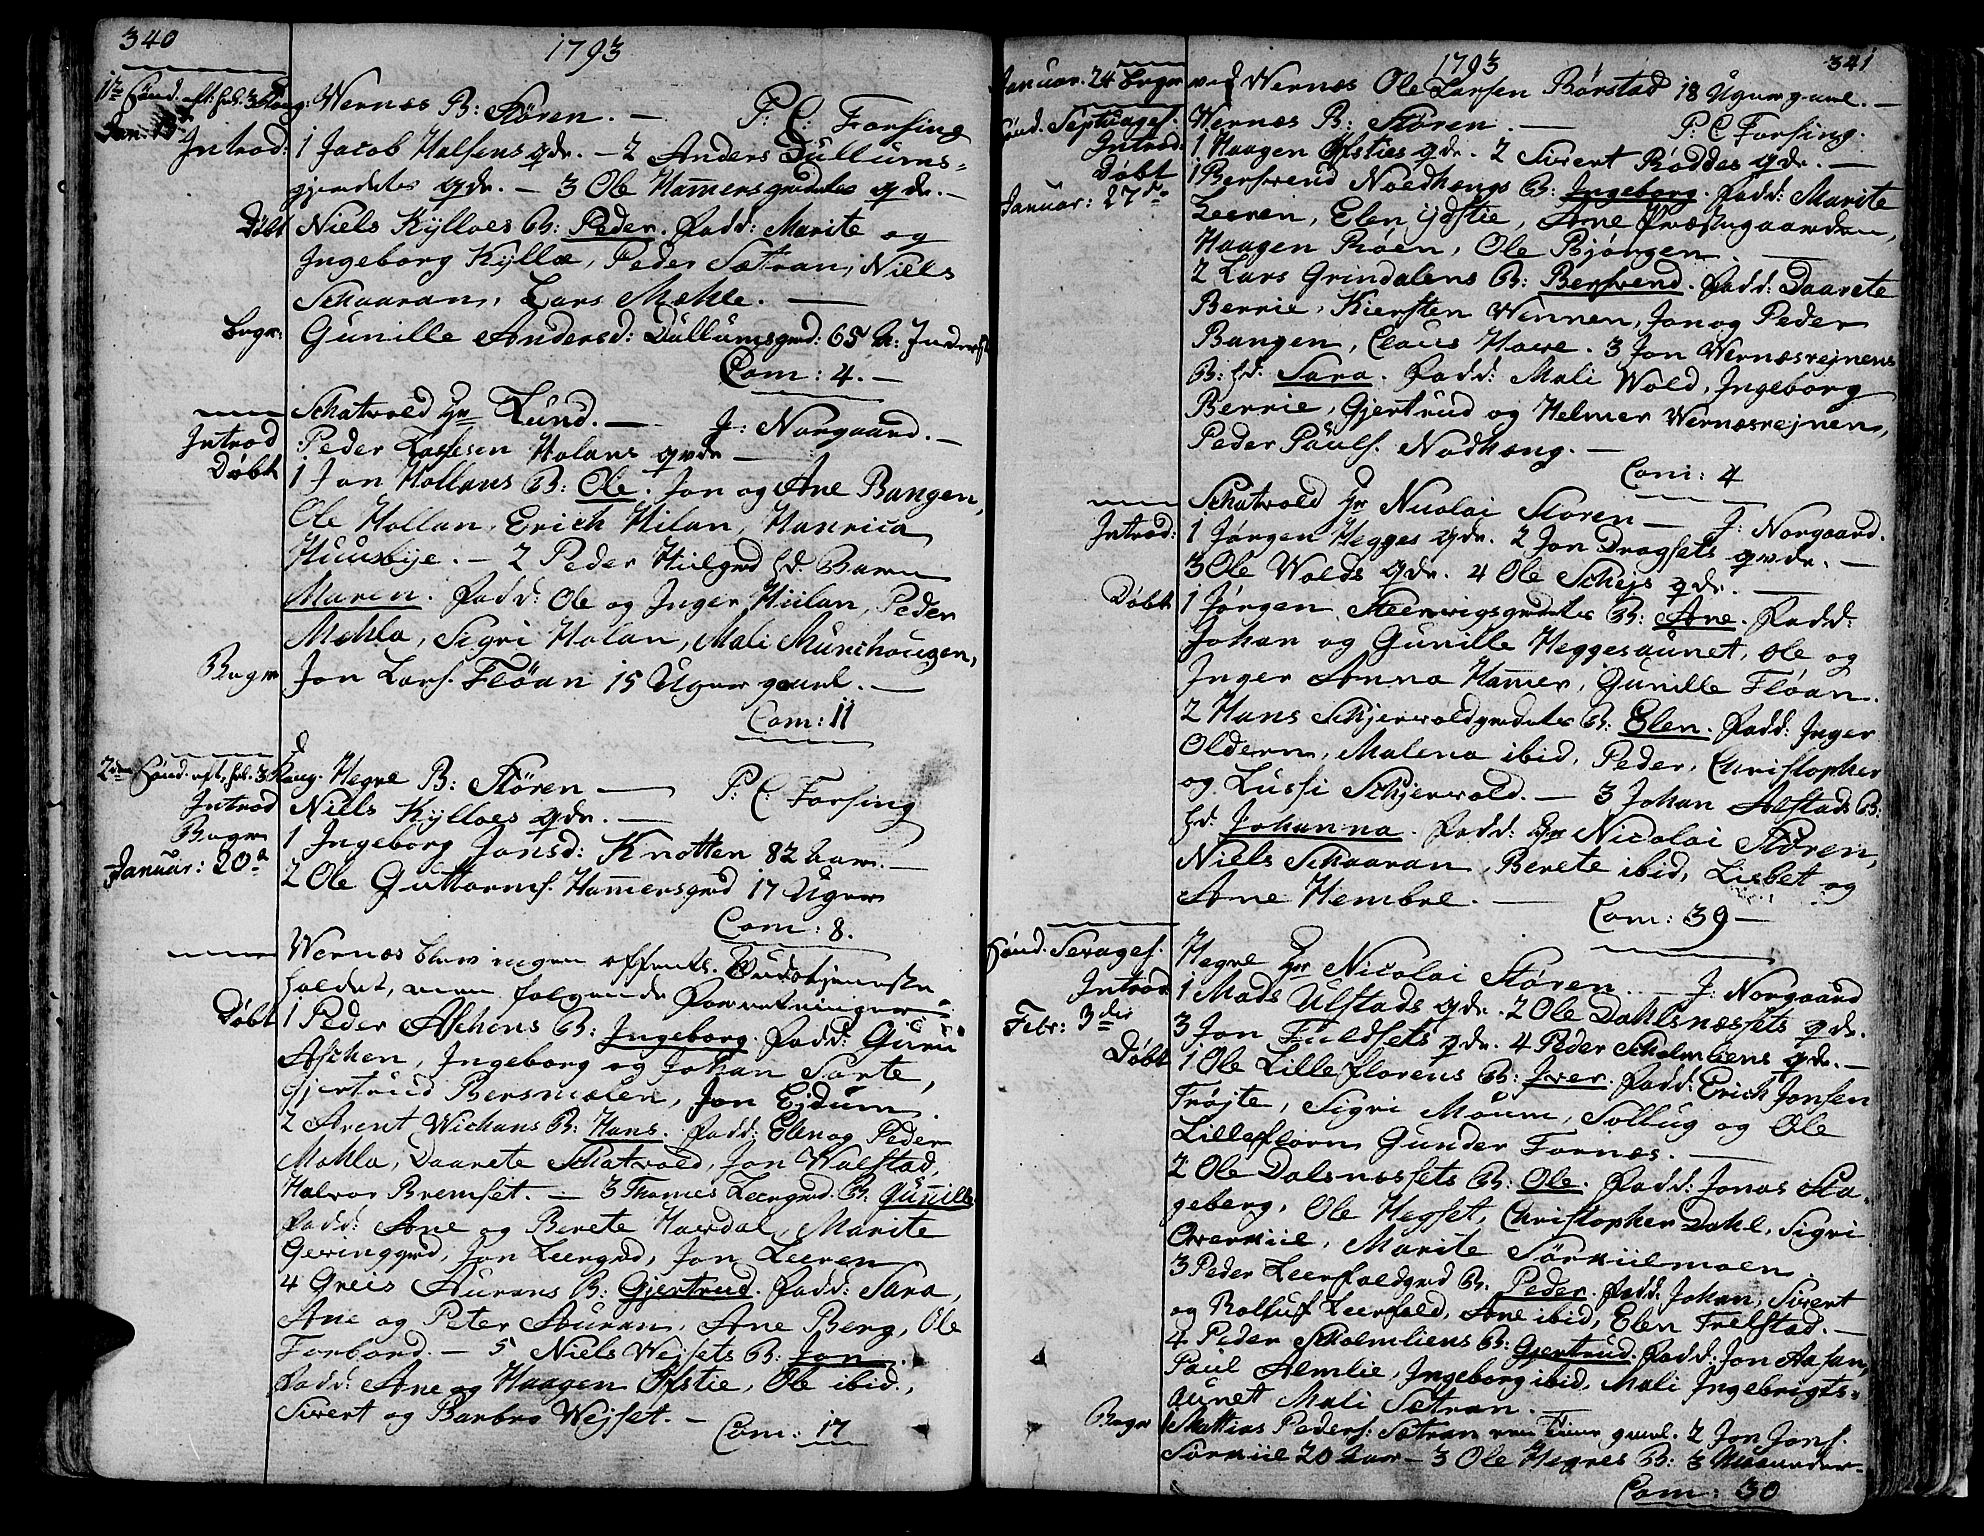 340
1793
1te Sönd. eft. hel. 3 Kong: Wernæs B: Stören. — P: C: Forsing
Jan: 13de
Introd: 1 Jacob Halsens qde. — 2 Anders Dullums-
gjerdetes qde. — 3 Ole Hammersgrdetes qde. —
Döbt Niels Kÿlloes B: Peder. Fadd: Marite og
Ingeborg Kÿlloe, Peder Sætran, Niels
Schaaran, Lars Mæhle. —
Begr: Gunille Andersd: Dullumsgrd: 65 A: Inderst
Com: 4. —
Schatvold Hr Lund. — J: Norgaard. —
Introd Peder Lassesen Holans qvde —
Döbt 1 Jon Hollans B: Ole. Jon og Ane Bangen,
Ole Hollan, Erich Hilan, Hanrica
Huusbÿe. — 2 Peder Hielgrd hd. Barn
Maren. Fadd: Ole og Inger Hiilan, Peder
Mæhla, Sigri Holan, Mali Munchougen,
Begr Jon Lars. Flöan 15 Uger gaml. —
Com: 11
2den Sönd. eft. hel. 3 Kong. Hegre B: Stören — P: C: Forsing
Introd Niels Kÿlloes qde. —
Begr 1 Ingeborg Jonsd: Knotten 82 Aar. —
Januar: 20de 2 Ole Guttorms. Hammersgrd 17 Uger
Com: 8.
Wernæs blev ingen offentl. Gudstjeneste
holdet, men følgende Forretninger:
Döbt 1 Peder Aschens B: Ingeborg. Fadd: Guru
Aschen, Ingeborg og Johan Sorte,
Gjertrud Bersmælen, Jon Ejdum.
2 Arent Wichans B: Hans. Fadd: Elen og Peder
Mæhla, Daarete Schatvold, Jon Walstad,
Halvor Bremset. — 3 Thomes Leergrd. B: Gunille
Fadd: Ane og Berete Hawdal, Marite
Gevinggrd, Jon Leergrd, Jon Leeren
4 Greis Aurans B: Gjertrud. Fadd: Sara,
Ane og Peter Auran, Ane Berg, Ole
Forbord. — 5 Niels Wejsets B: Jon.
Fadd: Ane og Haagen Öfstie, Ole ibid.,
Sivert og Barbro Wejset. —
Com: 17
341
1793
Januar. 24 Begr ved Wernæs Ole Larsen Börstad 18 Uger gaml. —
Sönd. Septuages. Wernæs B: Stören. — P: C Forsing.
Introd: 1 Haagen Öfsties qde. 2 Sivert Röddes qde. —
Döbt 1 Berfvend Nordhængs B: Ingeborg. Fadd: Marite
Januar: 27de Leeren, Elen Ydstie, Arne Præstegaarden,
Haagen Röen, Ole Bjorgen. —
2 Lars Grindalens B: Berfvend. Fadd: Daarete
Berrie, Kiersten Wennen, Jon og Peder
Bangen, Claus Hawe. 3 Jon Wernæsrejnens
B: hd. Sara. Fadd: Mali Wold, Ingeborg
Berrie, Gjertrud og Helmer Wernæsrejnen,
Peder Pauls. Nodhæng. —
Com: 4
Schatvold Hr Nicolai Stören — J: Norgaard.
Introd: 1 Jörgen Hegges qde. 2 Jon Dragsets qvde. —
3 Ole Wolds qde. 4 Ole Schejs qde. —
Döbt 1 Jörgen Steenvigsgrdetes B: Ane. Fadd:
Johan og Gunille Heggesaunet, Ole og
Inger Anna Hammer, Gunille Flöan.
2 Hans Schjervoldgrdetes B: Elen. Fadd: Inger
Oldern, Malena ibid, Peder, Christopher
og Lussi Schjervold. — 3 Johan Alstads B:
hd. Johanna. Fadd: Hr Nicolai Stören,
Niels Schaaran, Berete ibid, Lisbet og
Ane Hembre. —
Com: 39 —
Sönd. Sexages. Hegre Hr Nicolai Stören. — J: Norgaard
Introd 1 Mads Ulstads qde. 2 Ole Dahlsnæssets qde.
Febr: 3die 3 Jon Fuldsets qde. 4 Peder Scholmliens qde. —
Döbt 1 Ole Lilleflorens B: Iver. Fadd: Erich Jonsen
Fröjte, Sigri Moum, Sollug og Ole
Lilleflorn Gunder Fornæs. —
2 Ole Dalsnæssets B: Ole. Fadd: Jonas Sta-
geberg, Ole Hegset, Christopher Dahl, Sigri
Overkiil, Marite Sörkiilmoen.
3 Peder Leerfaldgrd B: Peder. Fadd: Johan, Sivert
og Rolluf Leerfald, Ane ibid, Elen Trelstad. —
4 Peder Scholmliens B: Gjertrud. Fadd: Jon Aasan,
Paul Almlie, Ingeborg ibid, Mali Ingebrigts-
aunet Mali Sætran. —
Begr 1 Mattias Peders. Sætran een Time gaml. 2 Jon Jons.
Sörkiil 20 Aar — 3 Ole Hegres B: 3 Maaneder.
Com: 30